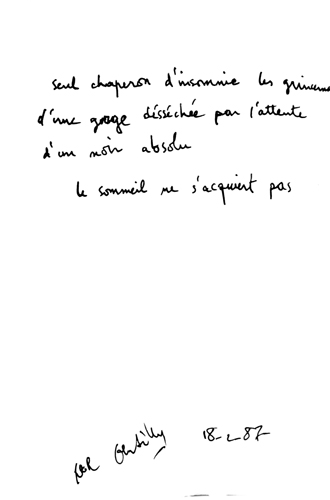 seul chaperon d'insomnie les
d'une gorge désséchée par l'attente
d'un noir absolu
le sommeil ne s'acquiert pas
Gentilly 18-2-87